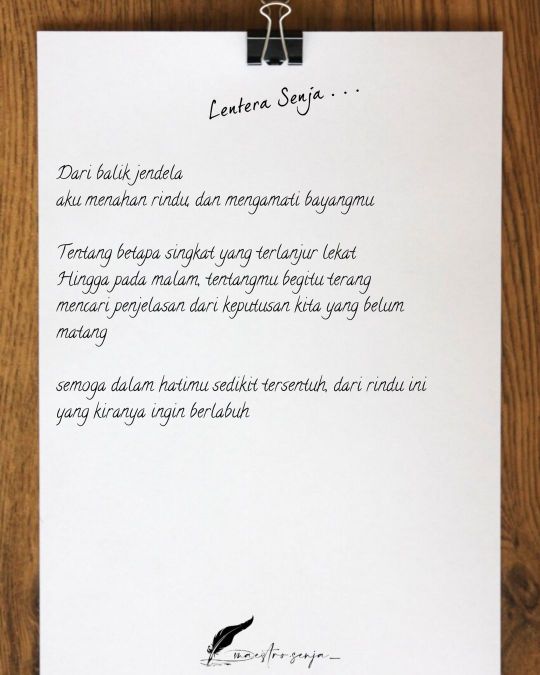 Lentera Senja . . .
Dari balik jendela
aku menahan rindu, dan mengamati bayangmu
Tentang betapa singkat yang terlanjur lekat
Hingga pada malam, tentangmu begitu terang
mencari penjelasan dari keputusan kita yang belum
matang
semoga dalam hatimu sedikit tersentuh, dari rindu ini
yang kiranya ingin berlabuh
maestro senja_